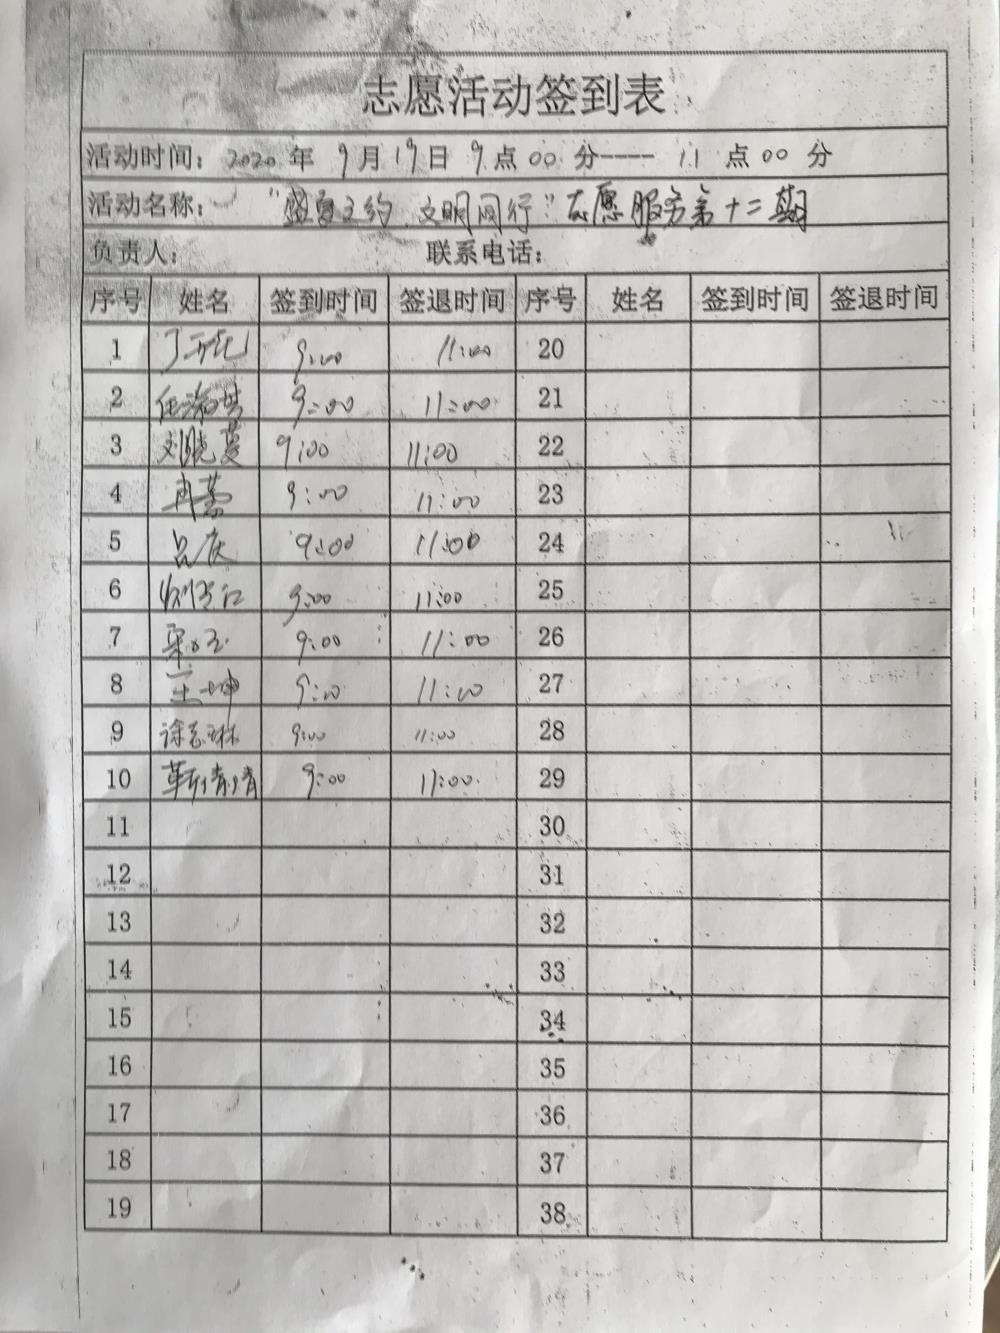 志愿活动签到表
活动时间：2020年 9月19日 9点00分---- 11点00分
活动名称：“盛夏之约 文明同行”志愿服务第十二期
负责人： 联系电话：
序号 姓名 签到时间 签退时间 序号 姓名 签到时间 签退时间
1 9:00 11:00 20
2 9:00 11:00 21
3 刘晓蔓 9:00 11:00 22
4 冉蒙 9:00 11:00 23
5 吕庆 9:00 11:00 24
6 9:00 11:00 25
7 9:00 11:00 26
8 王坤 9:00 11:00 27
9 徐志琳 9:00 11:00 28
10 靳倩倩 9:00 11:00 29
11 30
12 31
13 32
14 33
15 34
16 35
17 36
18 37
19 38